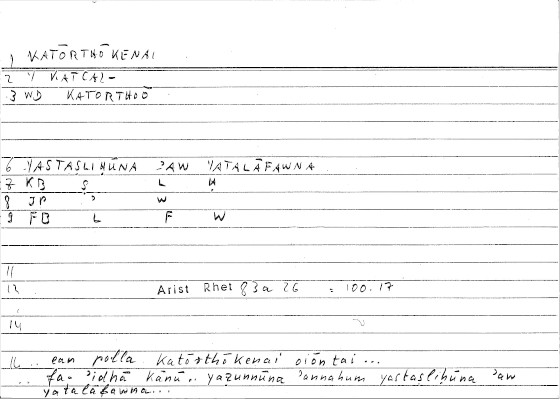 1 KATŌRTHŌKENAI
2 Y KATCAL-
3 WD KATORTHOŌ
6 YASTAṢLIḤŪNA ʾAW YATALĀFAWNA
7 KB Ṣ L Ḥ
8 JP ʾ W
9 FB L F W
11
12 Arist Rhet 83a 26 = 100.17
14
.. ean polla katōrthōkenai oiōntai...
.. fa- ʾidhā kānū.. yaẓunnūna ʾannahum yastaṣliḥūna ʾaw
yatalāfawna...